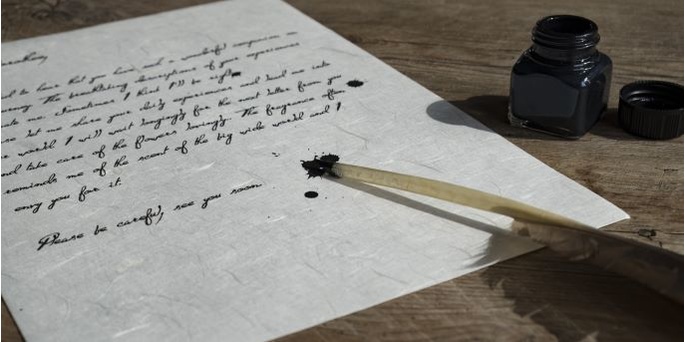 to hear that you have such a wonderful companion on
The breathtaking descriptions of your experiences
me sometimes I think I'll be right
let me share your daily experiences and lead me into
world I will wait longingly for the next letter from you
and take care of the flowers lovingly. The fragrance often
reminds me of the scent of the big wide world and I
envy you for it.
Please be careful, see you soon.